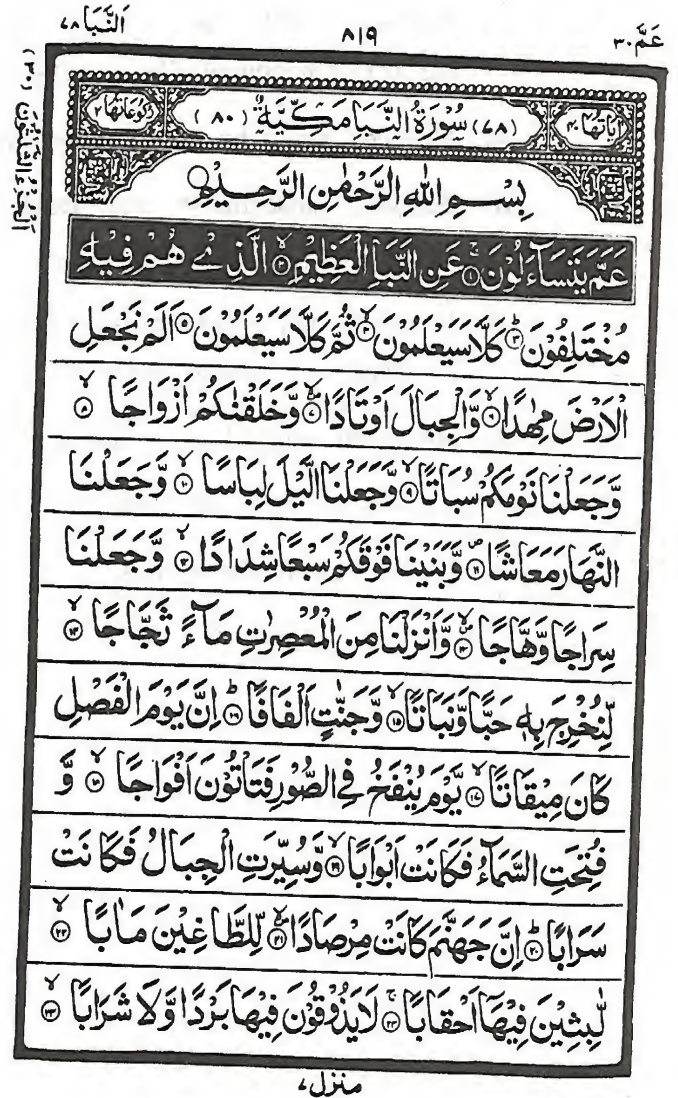 عَمَّ ٣٠
٨١٩
اَلنَّبَا ٧٨
اَلْجُزْءُ الثَّلَاثُوْنَ (٣٠)
اٰيَاتُهَا ٤٠ (٧٨) سُوْرَةُ النَّبَاِ مَكِّيَّةٌ (٨٠) رُكُوْعَاتُهَا ٢
بِسْمِ اللّٰهِ الرَّحْمٰنِ الرَّحِيْمِ
عَمَّ يَتَسَآءَلُوْنَ ۚ ۝١ عَنِ النَّبَاِ الْعَظِيْمِ ۙ ۝٢ الَّذِيْ هُمْ فِيْهِ
مُخْتَلِفُوْنَ ؕ ۝٣ كَلَّا سَيَعْلَمُوْنَ ۙ ۝٤ ثُمَّ كَلَّا سَيَعْلَمُوْنَ ۝٥ اَلَمْ نَجْعَلِ
الْاَرْضَ مِهٰدًا ۙ ۝٦ وَّالْجِبَالَ اَوْتَادًا ۪ۙ ۝٧ وَّخَلَقْنٰكُمْ اَزْوَاجًا ۙ ۝٨
وَّجَعَلْنَا نَوْمَكُمْ سُبَاتًا ۙ ۝٩ وَّجَعَلْنَا الَّيْلَ لِبَاسًا ۙ ۝١٠ وَّجَعَلْنَا
النَّهَارَ مَعَاشًا ۪ ۝١١ وَّبَنَيْنَا فَوْقَكُمْ سَبْعًا شِدَادًا ۙ ۝١٢ وَّجَعَلْنَا
سِرَاجًا وَّهَّاجًا ۪ۙ ۝١٣ وَّاَنْزَلْنَا مِنَ الْمُعْصِرٰتِ مَآءً ثَجَّاجًا ۙ ۝١٤
لِّنُخْرِجَ بِهٖ حَبًّا وَّنَبَاتًا ۙ ۝١٥ وَّجَنّٰتٍ اَلْفَافًا ؕ ۝١٦ اِنَّ يَوْمَ الْفَصْلِ
كَانَ مِيْقَاتًا ۙ ۝١٧ يَّوْمَ يُنْفَخُ فِي الصُّوْرِ فَتَاْتُوْنَ اَفْوَاجًا ۙ ۝١٨ وَّ
فُتِحَتِ السَّمَآءُ فَكَانَتْ اَبْوَابًا ۙ ۝١٩ وَّسُيِّرَتِ الْجِبَالُ فَكَانَتْ
سَرَابًا ؕ ۝٢٠ اِنَّ جَهَنَّمَ كَانَتْ مِرْصَادًا ۪ۙ ۝٢١ لِّلطَّاغِيْنَ مَاٰبًا ۙ ۝٢٢
لّٰبِثِيْنَ فِيْهَاۤ اَحْقَابًا ۚ ۝٢٣ لَا يَذُوْقُوْنَ فِيْهَا بَرْدًا وَّلَا شَرَابًا ۙ ۝٢٤
منزل ٧